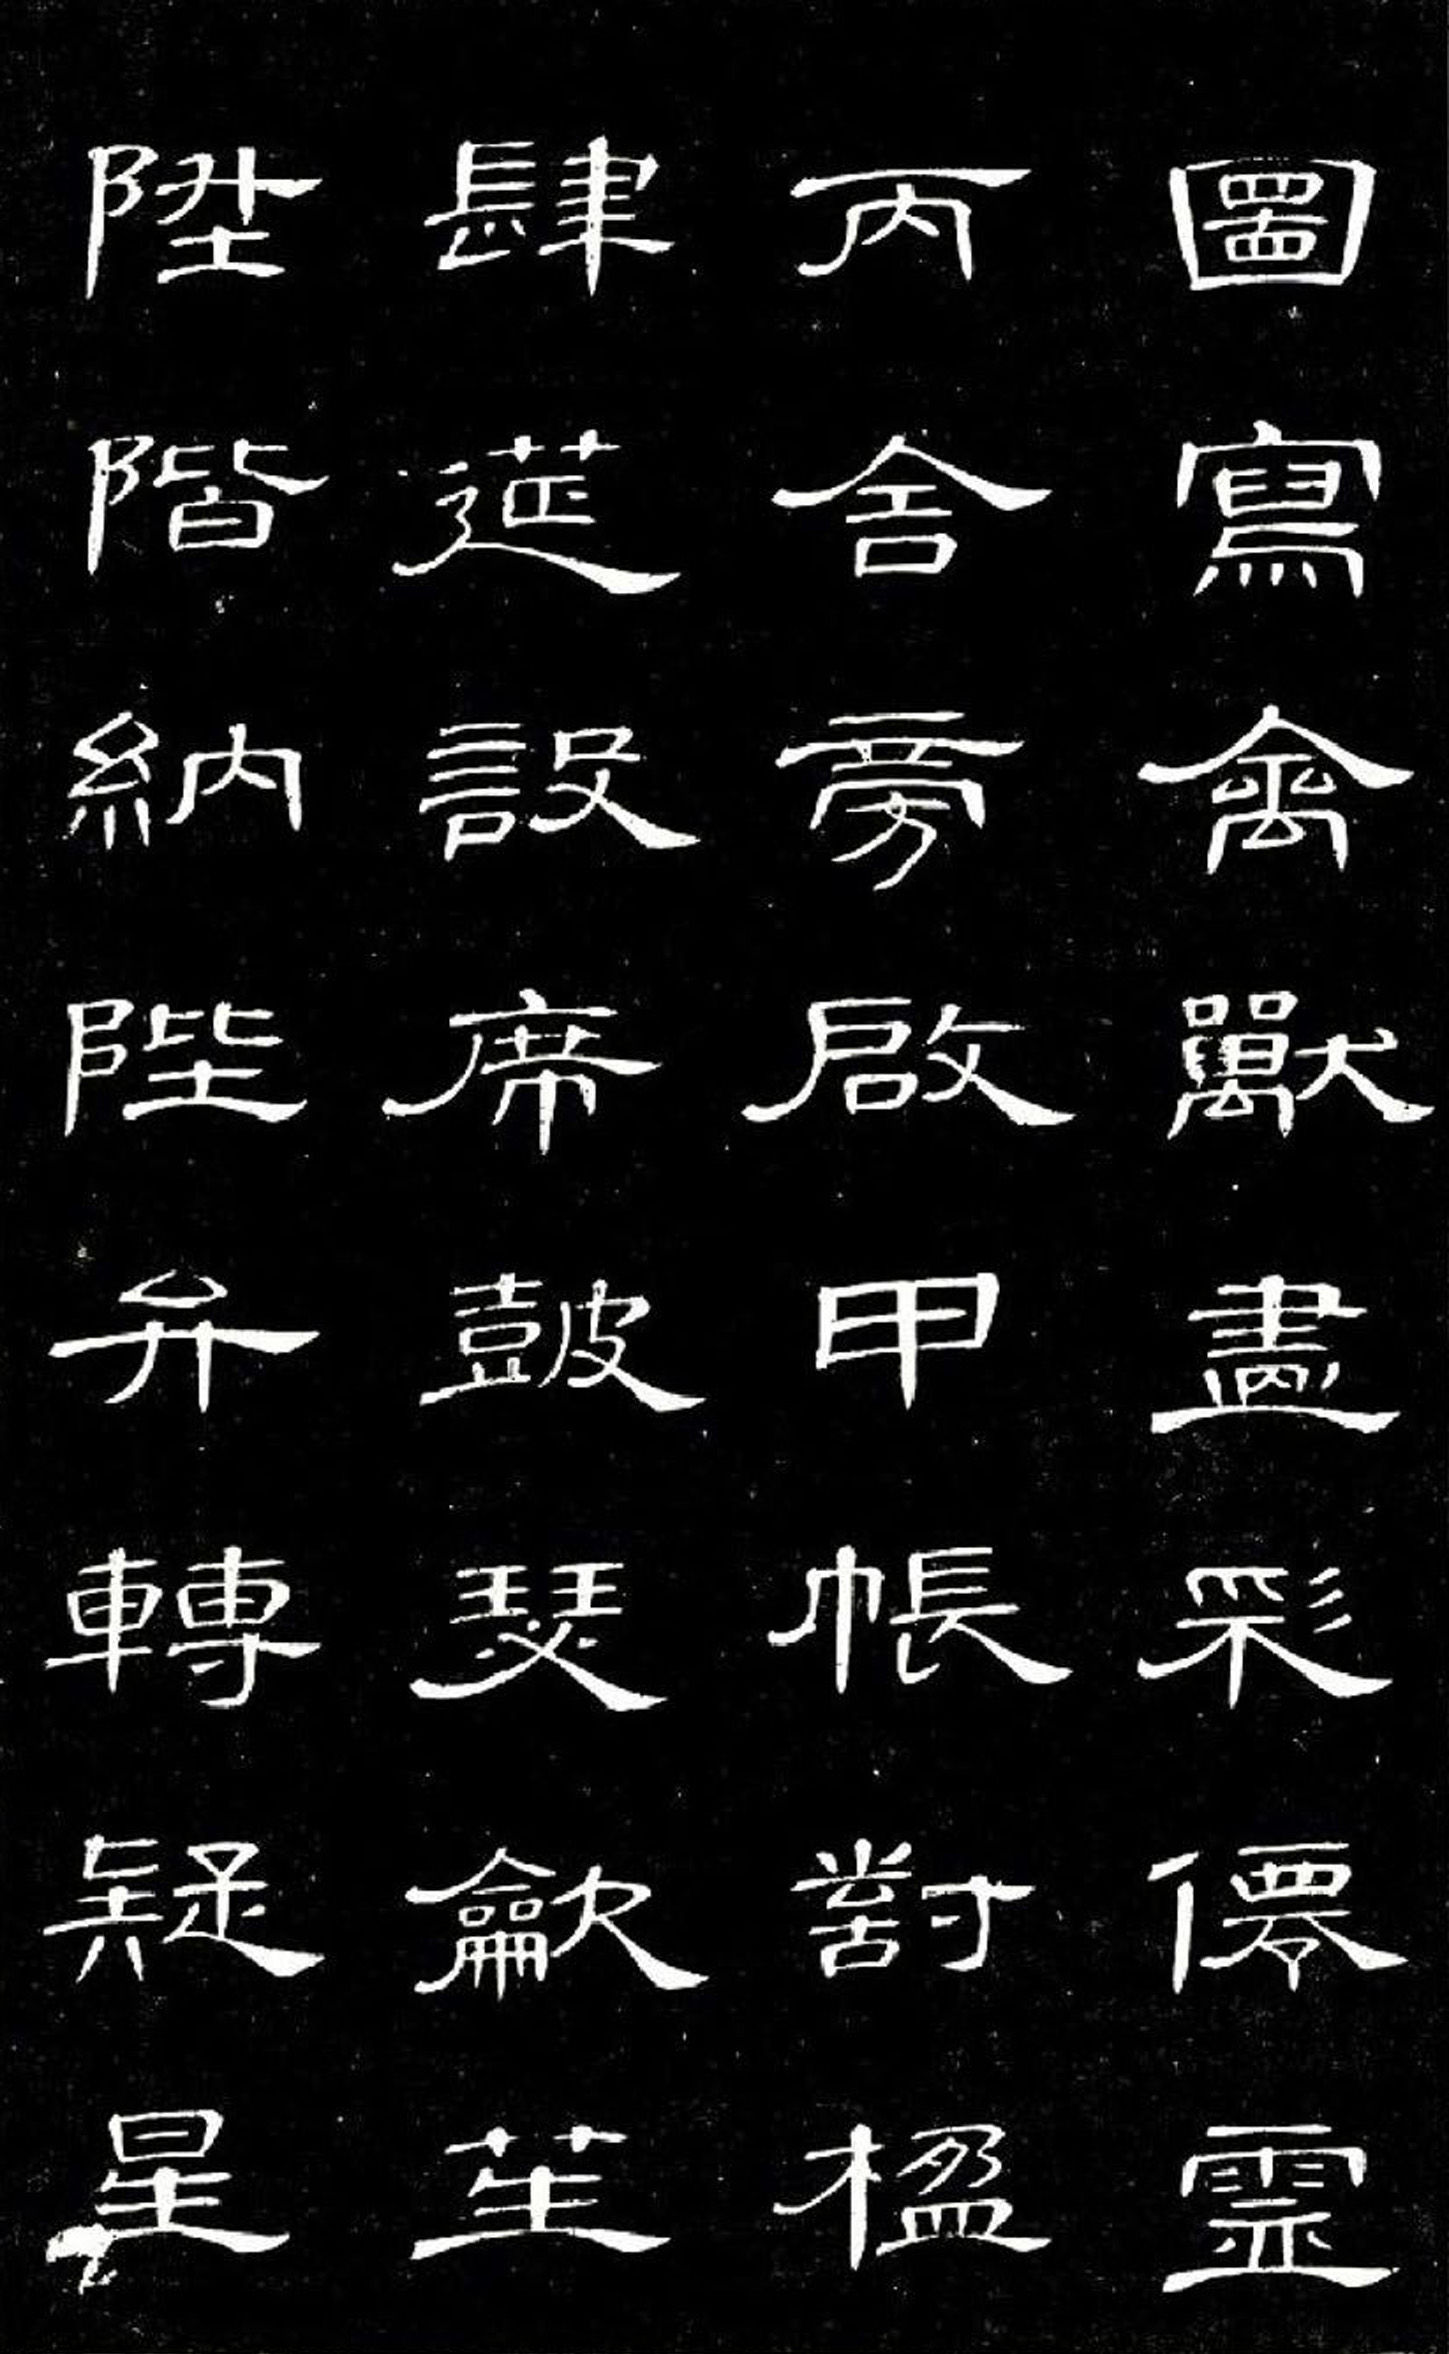 圖寫禽獸畫彩僊靈
丙舍旁啟甲帳對楹
肆筵設席皷瑟龡笙
陞階納陛弁轉疑星